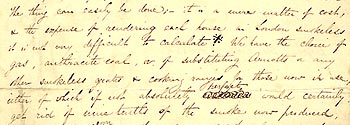 the thing can easily be done; – it is a mere matter of cost,
& the expense of rendering each house in London smokeless
it is not very difficult to calculate. We have the choice of
gas, anthracite coal, or of substituting
other smokeless grates & cooking ranges, for those now in use,
either of which if not absolutely perfect would certainly
get rid of nine tenths of the smoke now produced,